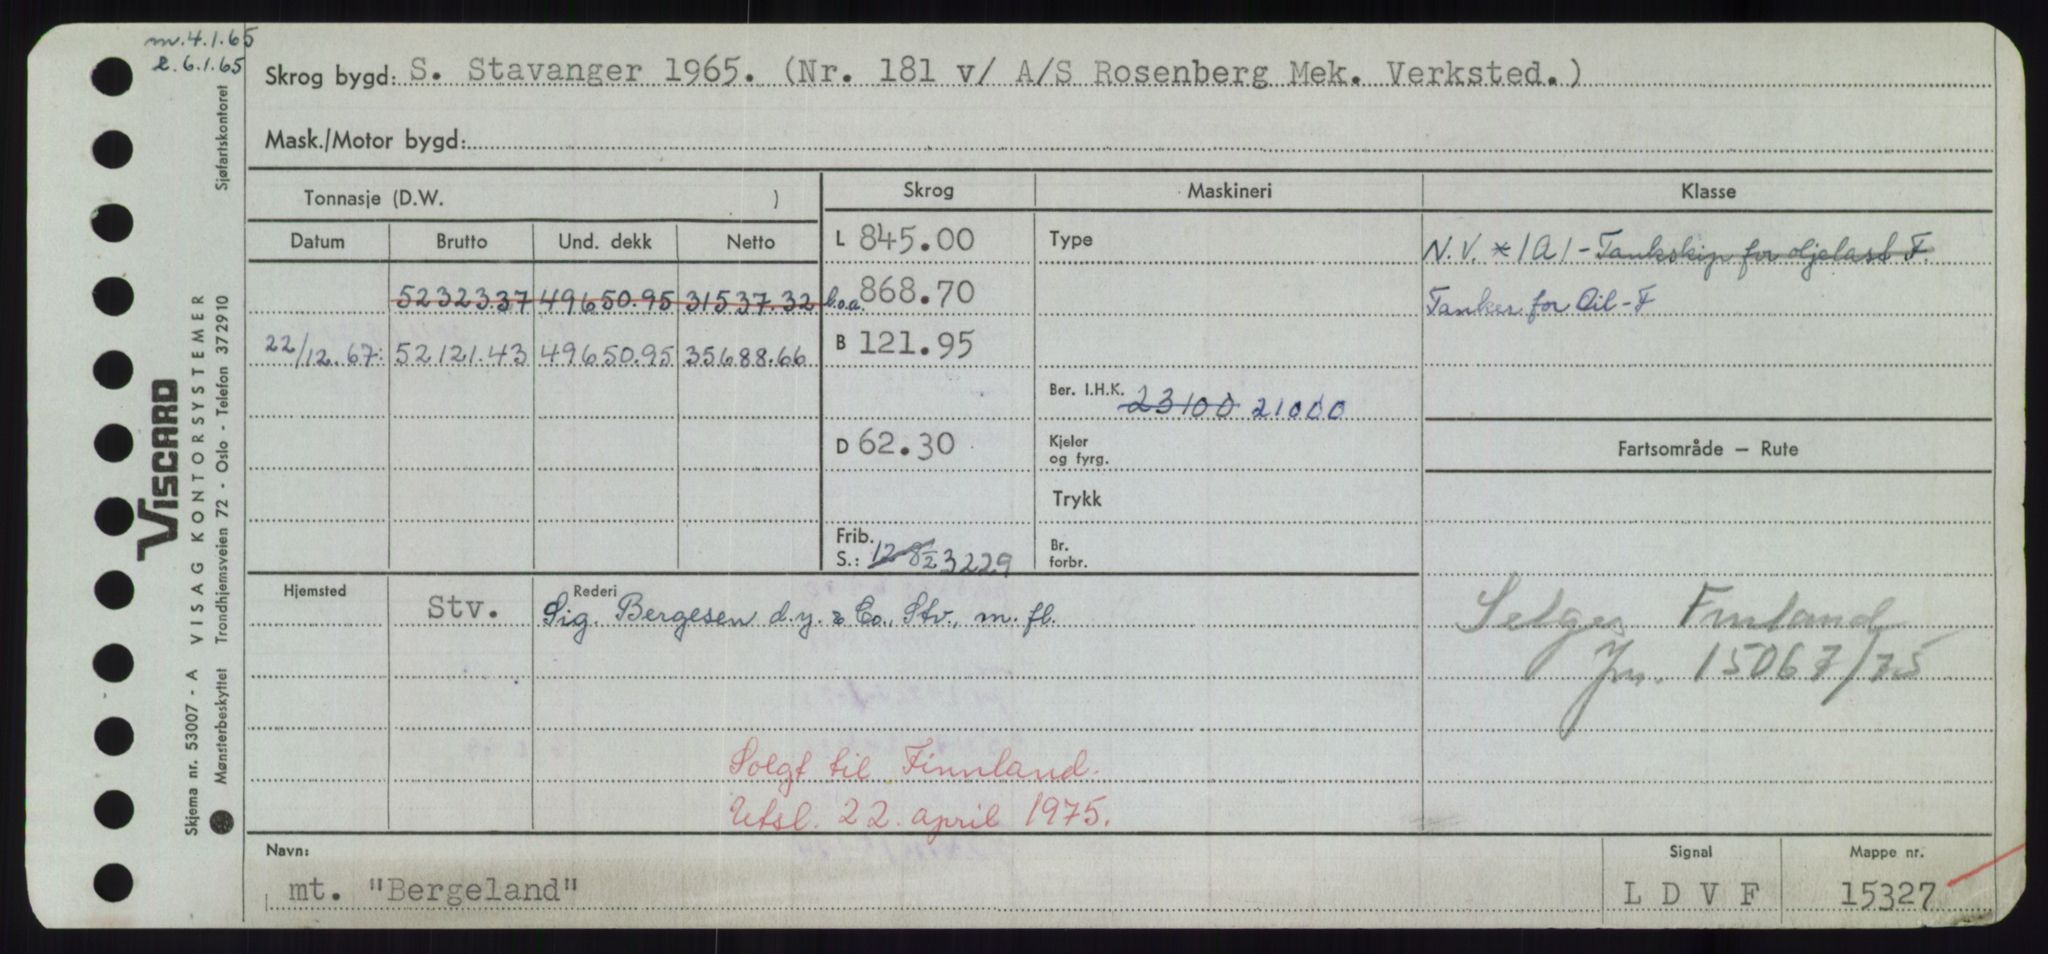 m. 4.1.65
e. 6.1.65
Skrog bygd: S. Stavanger 1965. (Nr. 181 v/ A/S Rosenberg Mek. Verksted.)
Mask./Motor bygd:
Tonnasje (D.W. )
Skrog
Maskineri
Klasse
Datum Brutto Und. dekk Netto
L 845.00
Type
N.V. *1A1 - Tankskip for oljelast F.
52323.37 49650.95 31537.32
l.o.a. 868.70
Tanker for Oil-F
22/12.67: 52121.43 49650.95 35688.66
B 121.95
Ber. I.H.K. 23100 21000
D 62.30
Kjeler
og fyrg.
Fartsområde – Rute
Trykk
Frib.
S.: 12-8½ 3229
Br.
forbr.
Hjemsted
Rederi
Stv. Sig. Bergesen d.y. & Co., Stv., m. fl.
Selges Finland
jnr. 15067/75
Solgt til Finnland.
Utsl. 22. april 1975.
Navn:
mt. "Bergeland"
Signal
L D V F
Mappe nr.
15327
VISCARD
Skjema nr. 53007 - A VISAG KONTORSYSTEMER
Mønsterbeskyttet Trondhjemsveien 72 - Oslo - Telefon 372910 Sjøfartskontoret